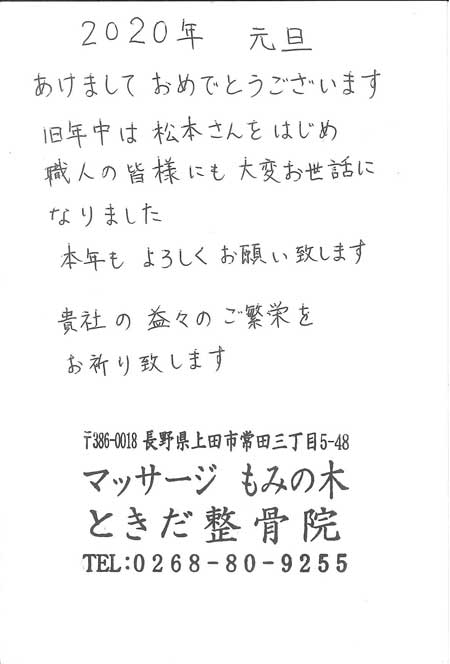 2020年 元旦
あけまして おめでとうございます
旧年中は 松本さんを はじめ
職人の皆様にも 大変お世話に
なりました
本年も よろしく お願い致します
貴社の 益々の ご繁栄を
お祈り致します
〒386-0018 長野県上田市常田三丁目5-48
マッサージ もみの木
ときだ整骨院
TEL:0268-80-9255